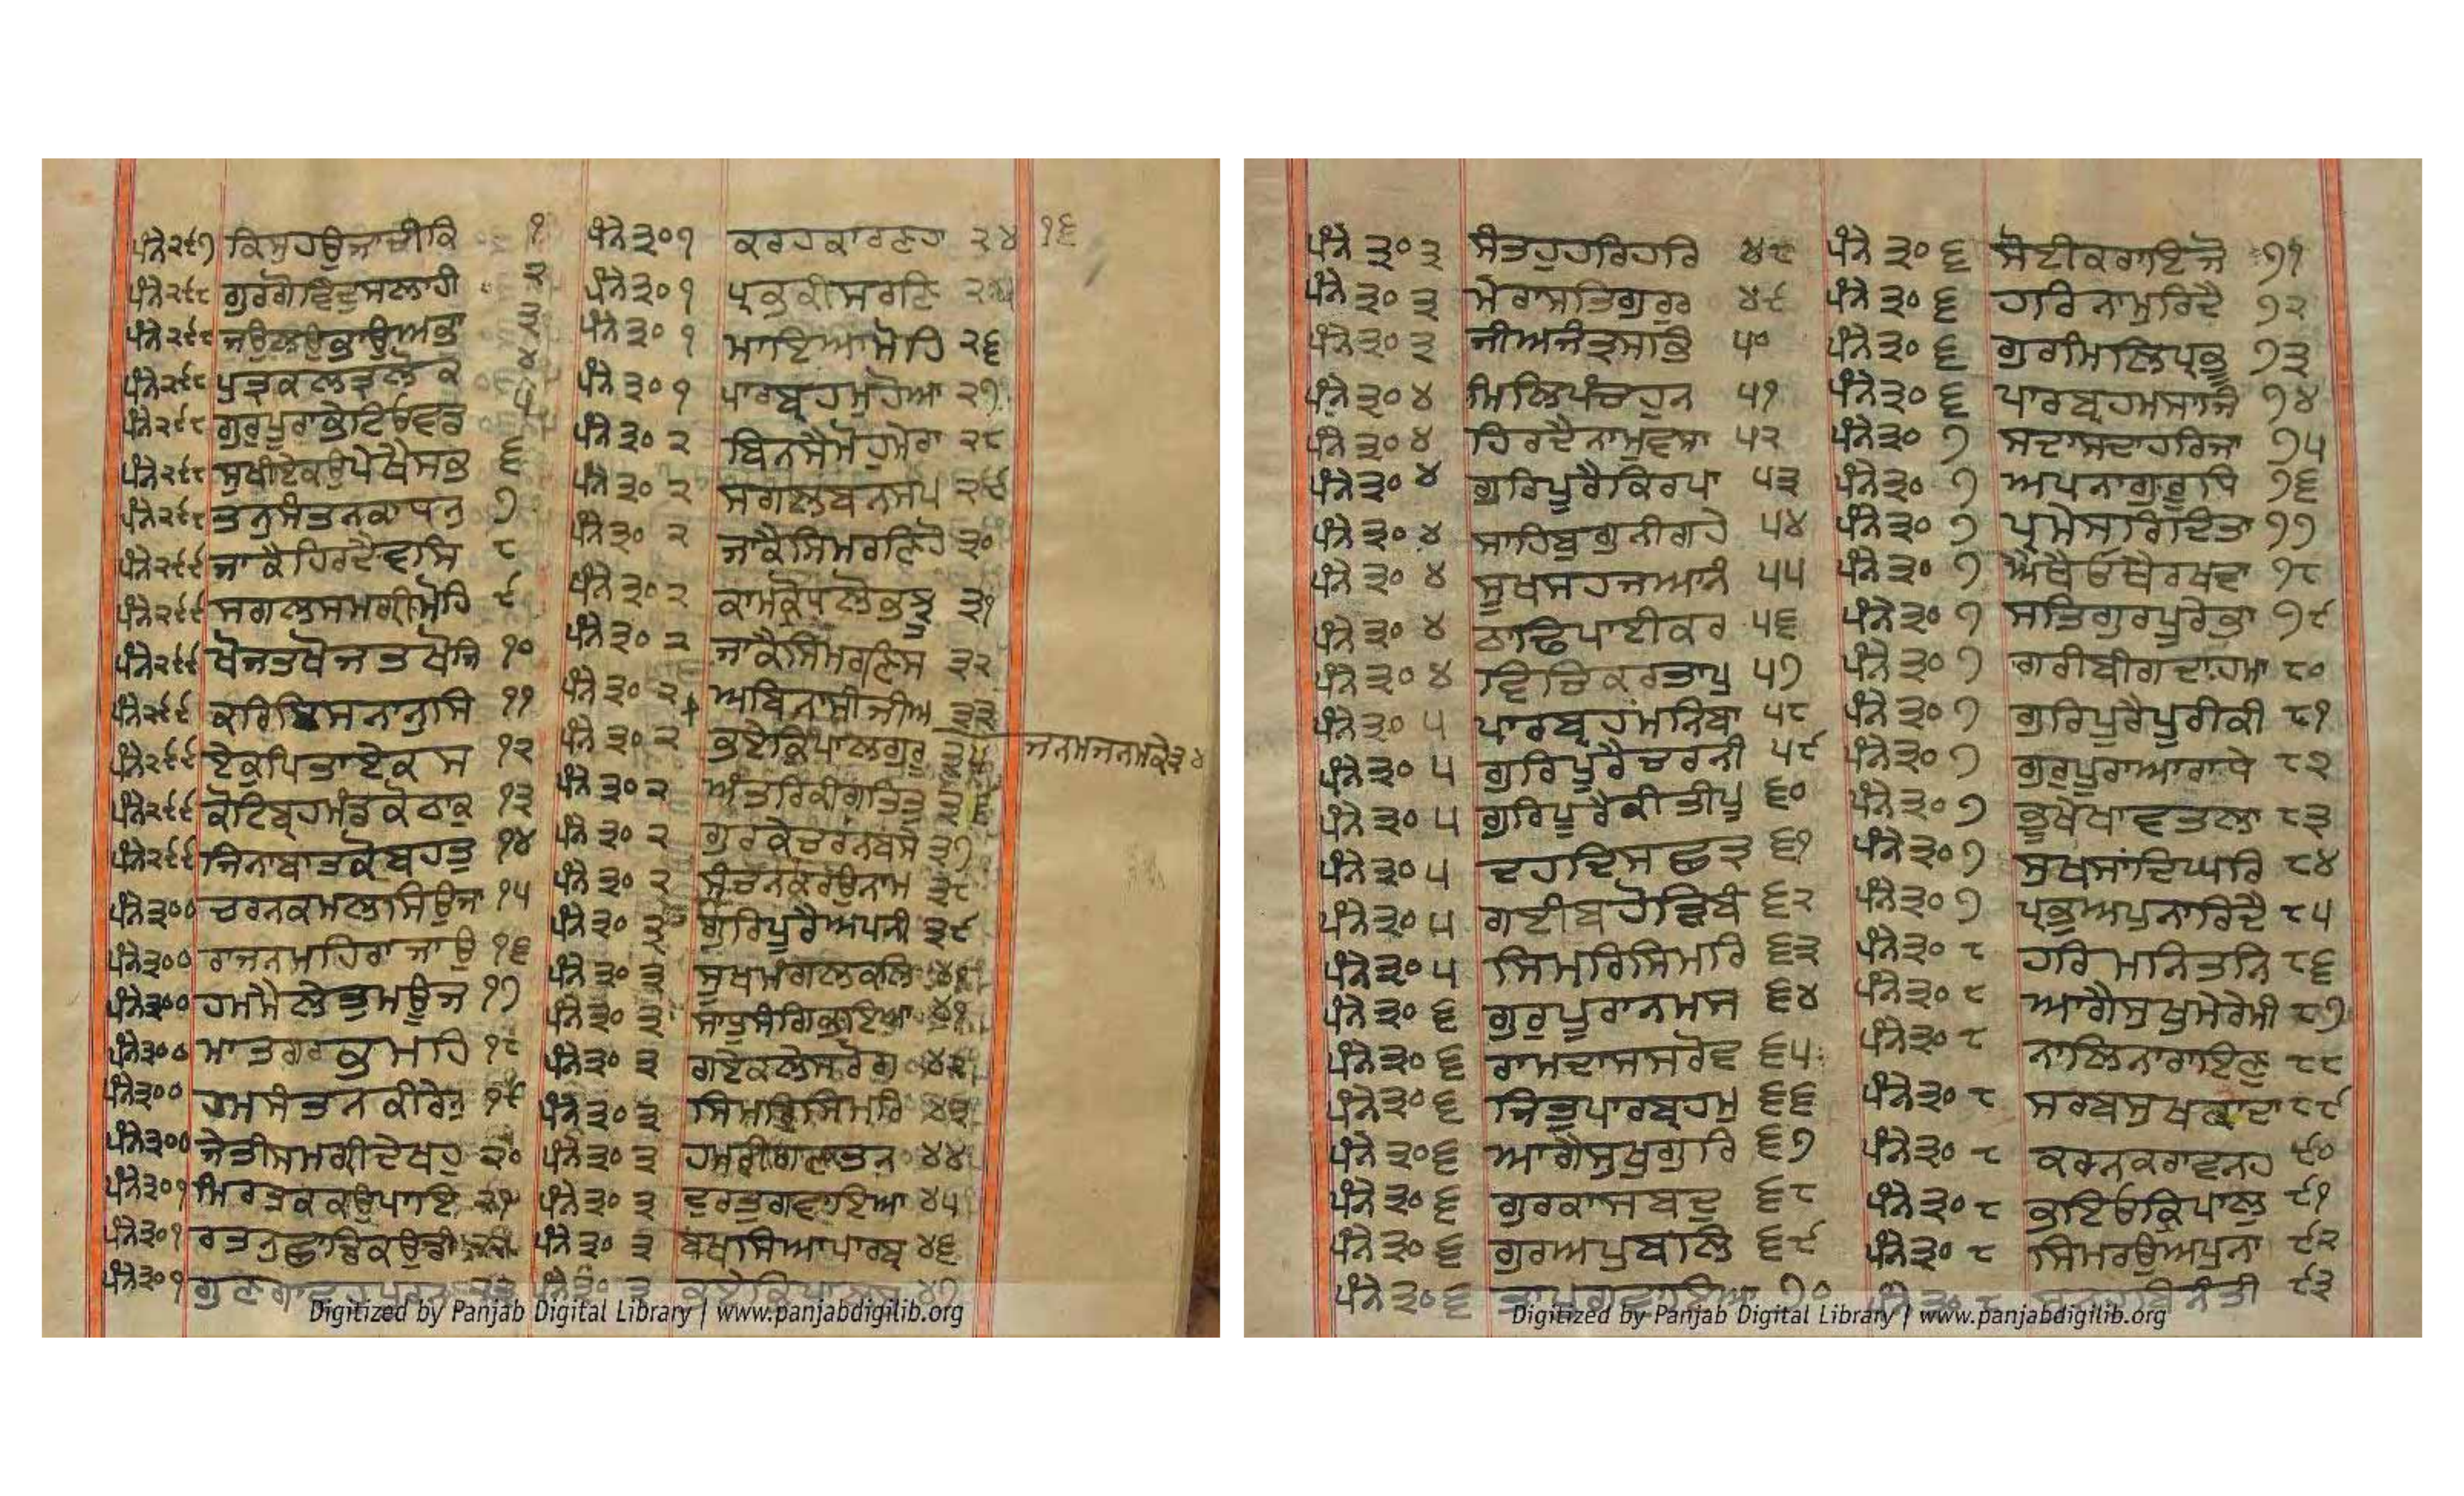 ਪੰਨੇ ੨੯੭ ਕਿਸੁ ਹਉ ਜਾਚੀ ਕਿ ੧
ਪੰਨੇ ੨੯੮ ਗੁਰ ਗੋਵਿੰਦੁ ਸਲਾਹੀ ੨
ਪੰਨੇ ੨੯੮ ਜਉ ਲਉ ਭਾਉ ਅਭਾ ੩
ਪੰਨੇ ੨੯੮ ਪੁਤ੍ਰ ਕਲਤ੍ਰ ਲੋਕ ੪
ਪੰਨੇ ੨੯੮ ਗੁਰੁ ਪੂਰਾ ਭੇਟਿਓ ਵਡ ੫
ਪੰਨੇ ੨੯੮ ਸੁਖੀਏ ਕਉ ਪੇਖੈ ਸਭ ੬
ਪੰਨੇ ੨੯੮ ਤਨੁ ਸੰਤਨ ਕਾ ਧਨੁ ੭
ਪੰਨੇ ੨੯੯ ਜਾ ਕੈ ਹਿਰਦੈ ਵਸਿ ੮
ਪੰਨੇ ੨੯੯ ਸਗਲ ਸਮਗ੍ਰੀ ਮੋਹਿ ੯
ਪੰਨੇ ੨੯੯ ਖੋਜਤ ਖੋਜਤ ਖੋਜਿ ੧੦
ਪੰਨੇ ੨੯੯ ਕਰਿ ਇਸਨਾਨੁ ਸਿ ੧੧
ਪੰਨੇ ੨੯੯ ਏਕੁ ਪਿਤਾ ਏਕਸ ੧੨
ਪੰਨੇ ੨੯੯ ਕੋਟਿ ਬ੍ਰਹਮੰਡ ਕੋ ਠਾਕੁ ੧੩
ਪੰਨੇ ੨੯੯ ਜਿਨਾ ਬਾਤ ਕੋ ਬਹੁਤੁ ੧੪
ਪੰਨੇ ੩੦੦ ਚਰਨ ਕਮਲ ਸਿਉ ਜਾ ੧੫
ਪੰਨੇ ੩੦੦ ਰਾਜਨ ਮਹਿ ਰਾਜਾ ਉ ੧੬
ਪੰਨੇ ੩੦੦ ਹਮ ਮੈਲੇ ਤੁਮ ਊਜ ੧੭
ਪੰਨੇ ੩੦੦ ਮਾਤ ਗਰਭ ਮਹਿ ੧੮
ਪੰਨੇ ੩੦੦ ਹਮ ਸੰਤਨ ਕੀ ਰੇਨੁ ੧੯
ਪੰਨੇ ੩੦੦ ਜੇਤੀ ਸਮਗ੍ਰੀ ਦੇਖਹੁ ੨੦
ਪੰਨੇ ੩੦੧ ਮਿਰਤਕ ਕਉ ਪਾਇ ੨੧
ਪੰਨੇ ੩੦੧ ਰਤਨੁ ਛਾਡਿ ਕਉਡੀ
ਪੰਨੇ ੩੦੧ ਗੁਣ ਗਾਵਹੁ ਪੂਰਨ ੨੩
ਪੰਨੇ ੩੦੧ ਕਰਹੁ ਕਾਰਣਹਾ ੨੪ ੧੬
ਪੰਨੇ ੩੦੧ ਪ੍ਰਭ ਕੀ ਸਰਣਿ
ਪੰਨੇ ੩੦੧ ਮਾਇਆ ਮੋਹਿ ੨੬
ਪੰਨੇ ੩੦੧ ਪਾਰਬ੍ਰਹਮੁ ਹੋਆ ੨੭
ਪੰਨੇ ੩੦੨ ਬਿਨਸੈ ਮੋਹੁ ਮੇਰਾ ੨੮
ਪੰਨੇ ੩੦੨ ਸਗਲ ਬਨਸਪ ੨੯
ਪੰਨੇ ੩੦੨ ਜਾ ਕੈ ਸਿਮਰਣਿ ਹੋ ੩੦
ਪੰਨੇ ੩੦੨ ਕਾਮ ਕ੍ਰੋਧ ਲੋਭ ਝੂ ੩੧
ਪੰਨੇ ੩੦੨ ਜਾ ਕੈ ਸਿਮਰਣਿ ਸ ੩੨
ਪੰਨੇ ੩੦੨ ਅਬਿਨਾਸੀ ਜੀਅ ੩੩
ਪੰਨੇ ੩੦੨ ਭਏ ਕ੍ਰਿਪਾਲ ਗੁਰੂ ੩੫ ਜਨਮ ਜਨਮ ਕੇ ੩੪
ਪੰਨੇ ੩੦੨ ਅੰਤਰ ਕੀ ਗਤਿ ਤੁ ੩੬
ਪੰਨੇ ੩੦੨ ਗੁਰ ਕੇ ਚਰਨ ਬਸੇ ੩੭
ਪੰਨੇ ੩੦੨ ਸੰਚਨਿ ਕਰਉ ਨਾਮ ੩੮
ਪੰਨੇ ੩੦੩ ਗੁਰਿ ਪੂਰੈ ਅਪਨੀ ੩੯
ਪੰਨੇ ੩੦੩ ਸੂਖ ਮੰਗਲ ਕਲਿ
ਪੰਨੇ ੩੦੩ ਸਾਧੁ ਸੰਗਿ ਭਇਆ ੪੧
ਪੰਨੇ ੩੦੩ ਗਏ ਕਲੇਸ ਰੋਗ ੪੨
ਪੰਨੇ ੩੦੩ ਸਿਮਰਿ ਸਿਮਰਿ ੪੩
ਪੰਨੇ ੩੦੩ ਹਮਰੀ ਗਣਤ ਨ ੪੪
ਪੰਨੇ ੩੦੩ ਦੁਰਤੁ ਗਵਾਇਆ ੪੫
ਪੰਨੇ ੩੦੩ ਬਖਸਿਆ ਪਾਰਬ੍ਰ ੪੬
ਪੰਨੇ ੩੦੩ ਭਏ ਕ੍ਰਿਪਾਲ ੪੭
Digitized by Panjab Digital Library | www.panjabdigilib.org
ਪੰਨੇ ੩੦੩ ਸੰਤਹੁ ਹਰਿ ਹਰਿ ੪੮
ਪੰਨੇ ੩੦੩ ਮੇਰਾ ਸਤਿਗੁਰੁ ੪੯
ਪੰਨੇ ੩੦੩ ਜੀਅ ਜੰਤ੍ਰ ਸਭਿ ੫੦
ਪੰਨੇ ੩੦੪ ਮਿਲਿ ਪੰਚਹੁ ਨ ੫੧
ਪੰਨੇ ੩੦੪ ਹਿਰਦੈ ਨਾਮੁ ਵਸਾ ੫੨
ਪੰਨੇ ੩੦੪ ਗੁਰਿ ਪੂਰੈ ਕਿਰਪਾ ੫੩
ਪੰਨੇ ੩੦੪ ਸਾਹਿਬੁ ਗੁਨੀ ਗਹੇ ੫੪
ਪੰਨੇ ੩੦੪ ਸੂਖ ਸਹਜ ਆਨੰ ੫੫
ਪੰਨੇ ੩੦੪ ਠਾਢਿ ਪਾਈ ਕਰ ੫੬
ਪੰਨੇ ੩੦੪ ਵਿਚਿ ਕਰਤਾ ਪੁ ੫੭
ਪੰਨੇ ੩੦੫ ਪਾਰਬ੍ਰਹਮਿ ਨਿਬਾ ੫੮
ਪੰਨੇ ੩੦੫ ਗੁਰਿ ਪੂਰੈ ਚਰਨੀ ੫੯
ਪੰਨੇ ੩੦੫ ਗੁਰਿ ਪੂਰੈ ਕੀਤੀ ਪੂ ੬੦
ਪੰਨੇ ੩੦੫ ਦਹ ਦਿਸ ਛਤ੍ਰ ੬੧
ਪੰਨੇ ੩੦੫ ਗਈ ਬਹੋੜਿ ਬੰ ੬੨
ਪੰਨੇ ੩੦੫ ਸਿਮਰਿ ਸਿਮਰਿ ੬੩
ਪੰਨੇ ੩੦੬ ਗੁਰੁ ਪੂਰਾ ਨਮਸ ੬੪
ਪੰਨੇ ੩੦੬ ਰਾਮਦਾਸ ਸਰੋਵ ੬੫
ਪੰਨੇ ੩੦੬ ਜਿਤੁ ਪਾਰਬ੍ਰਹਮੁ ੬੬
ਪੰਨੇ ੩੦੬ ਆਗੈ ਸੁਖੁ ਗੁਰਿ ੬੭
ਪੰਨੇ ੩੦੬ ਗੁਰ ਕਾ ਸਬਦੁ ੬੮
ਪੰਨੇ ੩੦੬ ਗੁਰ ਅਪੁਬਲਿ ੬੯
ਪੰਨੇ ੩੦੬ ਤਾਪੁ ਗਵਾਇਆ ੭੦
ਪੰਨੇ ੩੦੬ ਸੋਈ ਕਰਾਇ ਜੋ ੭੧
ਪੰਨੇ ੩੦੬ ਹਰਿ ਨਾਮੁ ਰਿਦੈ ੭੨
ਪੰਨੇ ੩੦੬ ਗੁਰ ਮਿਲਿ ਪ੍ਰਭੂ ੭੩
ਪੰਨੇ ੩੦੬ ਪਾਰਬ੍ਰਹਮ ਸਾਜੈ ੭੪
ਪੰਨੇ ੩੦੭ ਸਦਾ ਸਦਾ ਹਰਿ ਜਾ ੭੫
ਪੰਨੇ ੩੦੭ ਅਪਨਾ ਗੁਰੂ ਧਿ ੭੬
ਪੰਨੇ ੩੦੭ ਪ੍ਰਮੇਸਰਿ ਦਿਤਾ ੭੭
ਪੰਨੇ ੩੦੭ ਐਥੈ ਓਥੈ ਰਖਵਾ ੭੮
ਪੰਨੇ ੩੦੭ ਸਤਿਗੁਰ ਪੂਰੇ ਭਾ ੭੯
ਪੰਨੇ ੩੦੭ ਗਰੀਬੀ ਗਦਾ ਹਮਾ ੮੦
ਪੰਨੇ ੩੦੭ ਗੁਰਿ ਪੂਰੈ ਪੂਰੀ ਕੀ ੮੧
ਪੰਨੇ ੩੦੭ ਗੁਰੁ ਪੂਰਾ ਆਰਾਧੇ ੮੨
ਪੰਨੇ ੩੦੭ ਭੂਖੇ ਖਾਵਤ ਲਾ ੮੩
ਪੰਨੇ ੩੦੭ ਸੁਖ ਸਾਂਦਿ ਘਰਿ ੮੪
ਪੰਨੇ ੩੦੭ ਪ੍ਰਭੁ ਅਪੁਨਾ ਰਿਦੈ ੮੫
ਪੰਨੇ ੩੦੮ ਹਰਿ ਮਨਿ ਤਨਿ ੮੬
ਪੰਨੇ ੩੦੮ ਆਗੈ ਸੁਖੁ ਮੇਰੇ ਮੀ ੮੭
ਪੰਨੇ ੩੦੮ ਨਾਲਿ ਨਾਰਾਇਣੁ ੮੮
ਪੰਨੇ ੩੦੮ ਸਰਬ ਸੁਖ ਕਾ ਦਾ ੮੯
ਪੰਨੇ ੩੦੮ ਕਰਨ ਕਰਾਵਨਹ ੯੦
ਪੰਨੇ ੩੦੮ ਭਇਓ ਕ੍ਰਿਪਾਲੁ ੯੧
ਪੰਨੇ ੩੦੮ ਸਿਮਰਉ ਅਪੁਨਾ ੯੨
ਬਿਨੰਤੀ ੯੩
Digitized by Panjab Digital Library | www.panjabdigilib.org